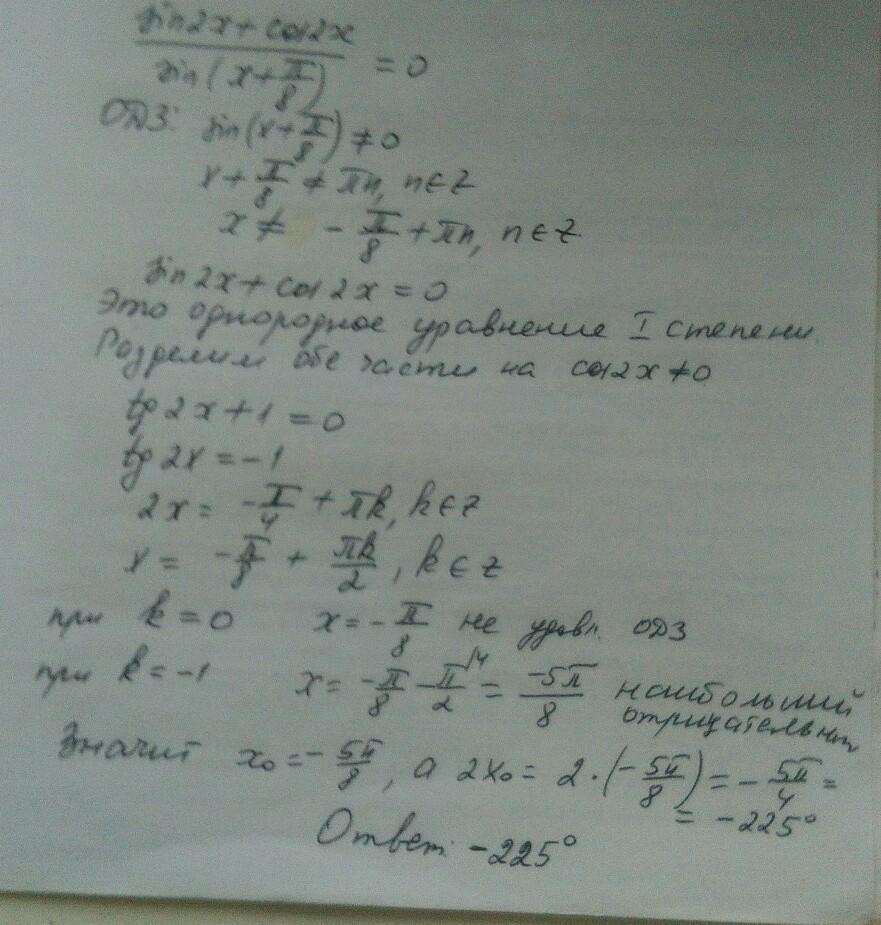 sin2x + cos2x / sin(x + π/8) = 0
ОДЗ: sin(x + π/8) ≠ 0
x + π/8 ≠ πn, n ∈ Z
x ≠ - π/8 + πn, n ∈ Z
sin 2x + cos 2x = 0
Это однородное уравнение I степени.
Разделим обе части на cos2x ≠ 0
tg 2x + 1 = 0
tg 2x = -1
2x = -π/4 + πk, k ∈ Z
x = -π/8 + πk/2, k ∈ Z
при k = 0 x = - π/8 не удовл. ОДЗ
при k = -1 x = -π/8 - π/2 \4 = -5π/8 наибольший
отрицательный
Значит x₀ = - 5π/8, а 2x₀ = 2·(-5π/8) = - 5π/4 =
= -225°
Ответ: -225°